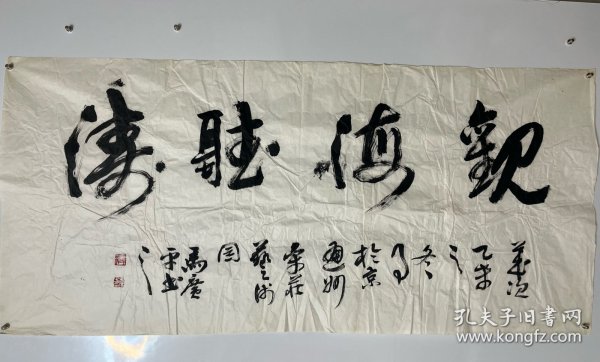 觀海聽濤
歲次
乙未
之
冬
月
於京
通州
宋莊
藝術
園
馬廣
平書
之
孔夫子旧书网
www.kongfz.com